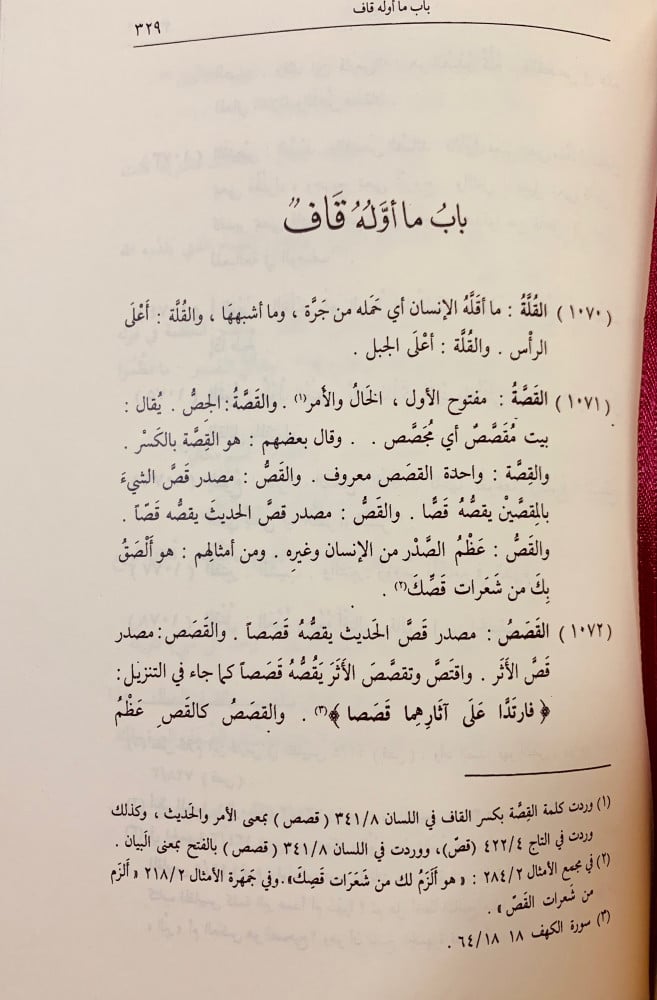 باب ما أوله قاف
٣٢٩
بابُ ما أوّلُهُ قَاف
(١٠٧٠) القُلَّةُ : ما أقَلَّهُ الإنسان أي حَمَله من جَرَّة ، وما أشبههَا ، والقُلَّة : أَعْلَى
الرأْس . والقُلَّة : أعْلَى الجبل .
(١٠٧١) القَصَّةُ : مفتوح الأول ، الخَالُ والأَمر(١) . والقَصَّةُ : الجصُّ . يُقال :
بيت مُقَصَّصٌ أي مُجَصَّص . . وقال بعضهم : هو القِصَّة بالكَسْر .
والقِصَّة : واحدة القصَص معروف . والقَصُّ : مصدر قَصَّ الشيءَ
بالمِقصَّيْن يقصُّهُ قَصًّا . والقَصُّ : مصدر قصَّ الحديثَ يقصُّه قَصّا .
والقَصُّ : عَظْمُ الصَّدْر من الإنسان وغيرِه . ومن أمثالِهم : هو أَلْصَقُ
بِكَ من شَعَرات قَصِّكَ(٢) .
(١٠٧٢) القَصَصُ : مصدر قَصَّ الحَديث يقصُّهُ قَصَصاً . والقَصَص : مصدر
قَصَّ الأَثَر . واقتَصَّ وتقصَّصَ الأَثَرَ يَقُصُّهُ قَصَصاً كما جاء في التنزيل :
﴿ فارتَدَّا عَلَى آثارِهِما قَصَصا ﴾(٣) . والقصَصُ كالقَصِ عَظْمُ
(١) وردت كلمة القِصَّة بكسر القاف في اللسان ٣٤١/٨ ( قصص ) بمعنى الأمر والحَديث ، وكذلك
وردت في التاج ٤٢٢/٤ (قصّ)، ووردت في اللسان ٣٤١/٨ ( قصص ) بالفتح بمعنى البيان .
(٢) في مجمع الأمثال ٢٨٤/٢ : « هو ألزَمُ لك من شَعَرَات قَصِكَ». وفي جَمهَرة الأمثال ٢١٨/٢ « ألزَم
من شَعرات القَصّ » .
(٣) سورة الكهف ١٨ ٦٤/١٨ .